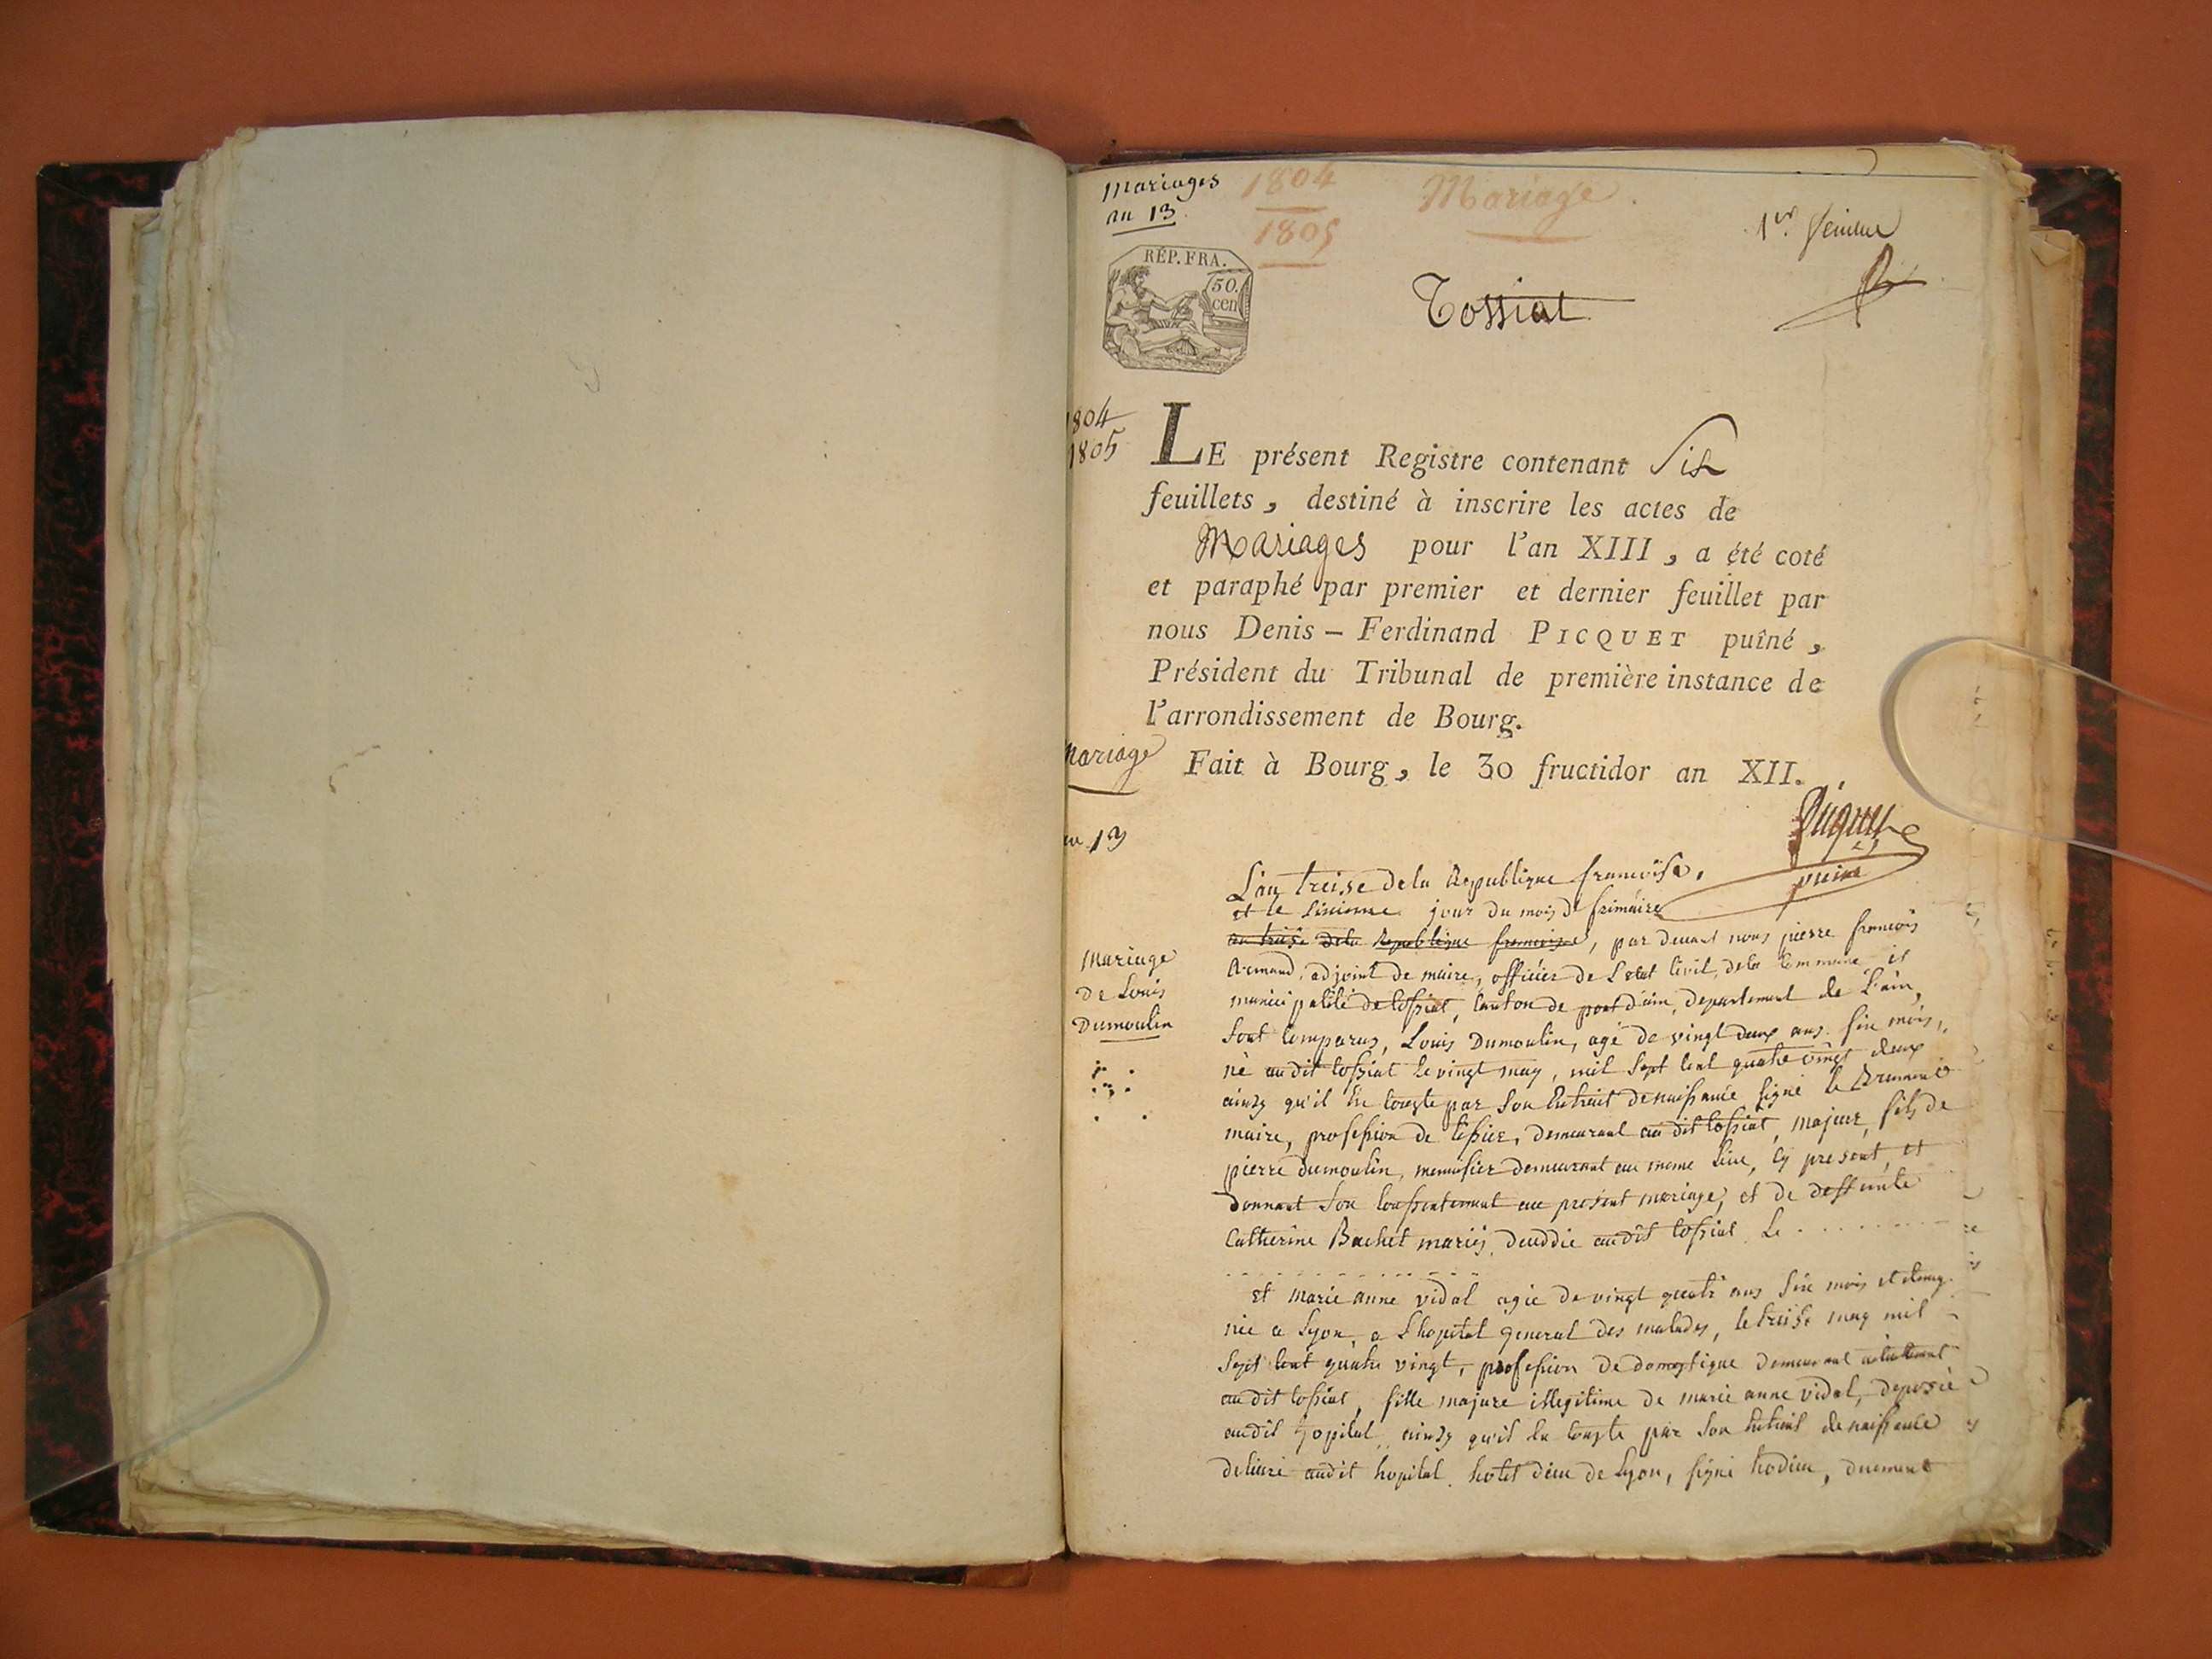 Mariages
an 13
1804
1805
Mariage
1er feuillet
Tossiat
RÉP. FRA.
50.
cen
1804
1805
LE présent Registre contenant Six
feuillets, destiné à inscrire les actes de
Mariages pour l'an XIII, a été coté
et paraphé par premier et dernier feuillet par
nous Denis-Ferdinand PICQUET puîné,
Président du Tribunal de première instance de
l'arrondissement de Bourg.
Mariage
Fait à Bourg, le 30 fructidor an XII.
an 13
Picquet
puiné
L'an treise de la Republique francoise,
et le sixieme jour du mois de frimaire
an treise de la Republique francoise, par devant nous pierre francois
adjoint de maire, officier de L'etat Civil, de la Commune et
municipalité de tossiat, canton de pont d'ain, departement de L'ain,
Mariage
De Louis
Dumoulin
Sont comparus, Louis Dumoulin, agé de vingt deux ans six mois,
né audit tossiat le vingt may, mil sept cent quatre vingt deux
ainsy qu'il en conste par son Extrait de naissance signé
maire, profession de tissier, demeurant au dit tossiat, majeur, fils de
pierre dumoulin, menusier demeurant au meme lieu, cy present, et
donnant son consentement au present mariage, et de deffunte
Catherine Bachet mariés, audit tossiat Le
et Marie anne vidal agée de vingt quatre ans six mois et
née a Lyon, a L'hopital general des malades, le treise may mil
sept cent quatre vingt, profession de domestique demeurant actuellement
au dit tossiat, fille majure illegitime de marie anne vidal, deposée
audit hopital, ainsy qu'il en conste par son Extrait de naissance
delivré audit hopital hotel dieu de Lyon, signé, duement